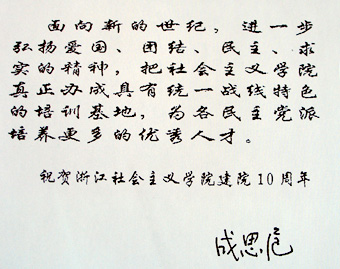 面向新的世纪，进一步
弘扬爱国、团结、民主、求
实的精神，把社会主义学院
真正办成具有统一战线特色
的培训基地，为各民主党派
培养更多的优秀人才。
祝贺浙江社会主义学院建院10周年
成思危